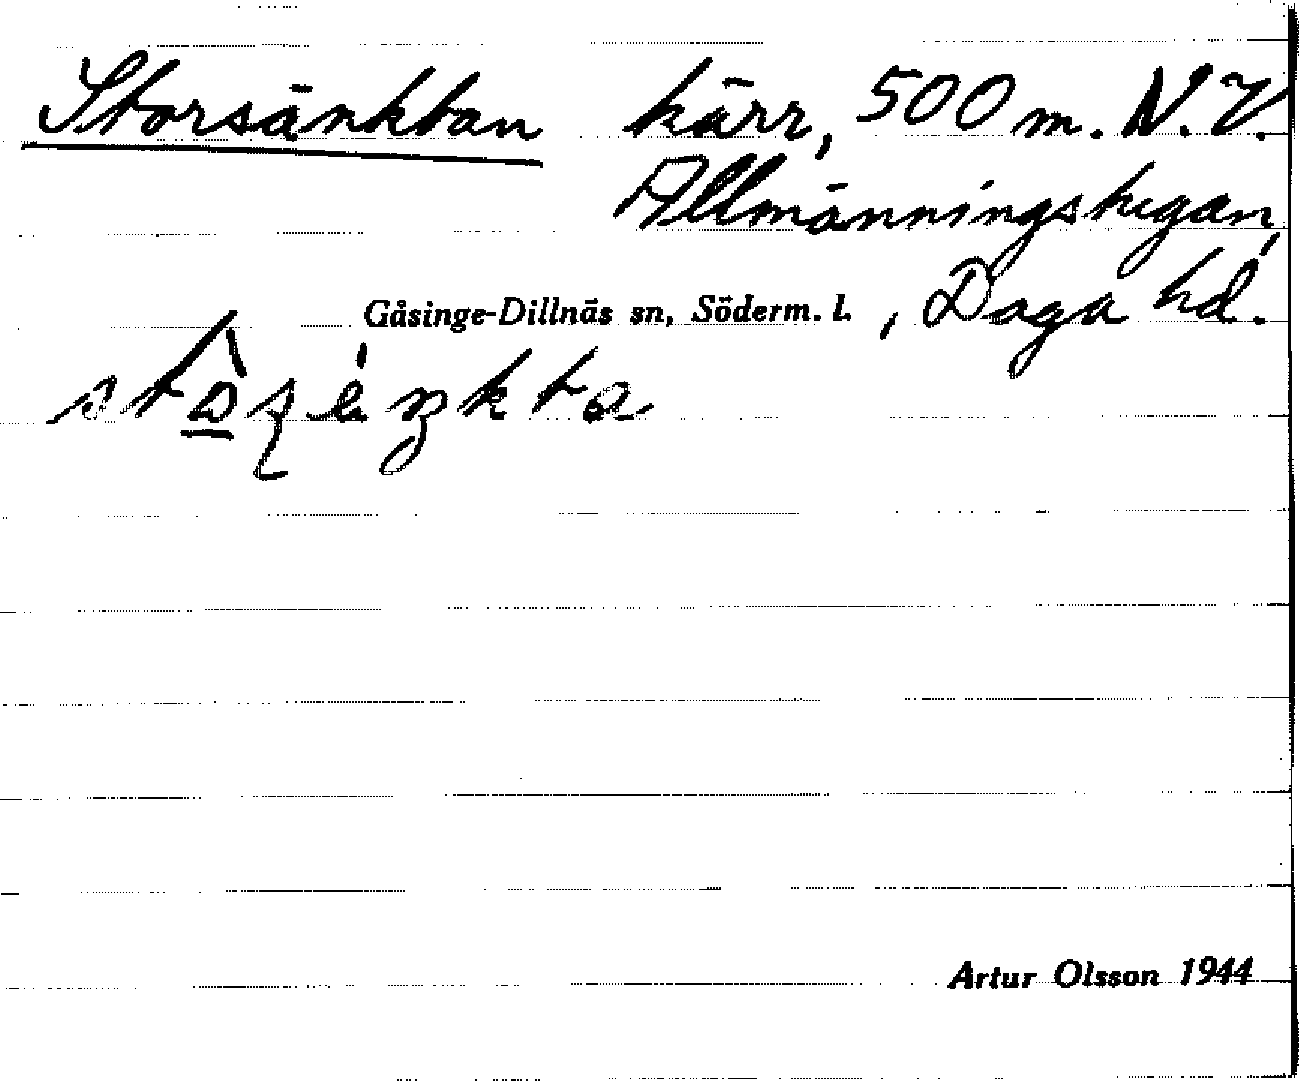 Storsänktan kärr, 500 m. N.V.
Allmänningstugan,
Gåsinge-Dillnäs sn, Söderm. l. , Daga hd.
Artur Olsson 1944